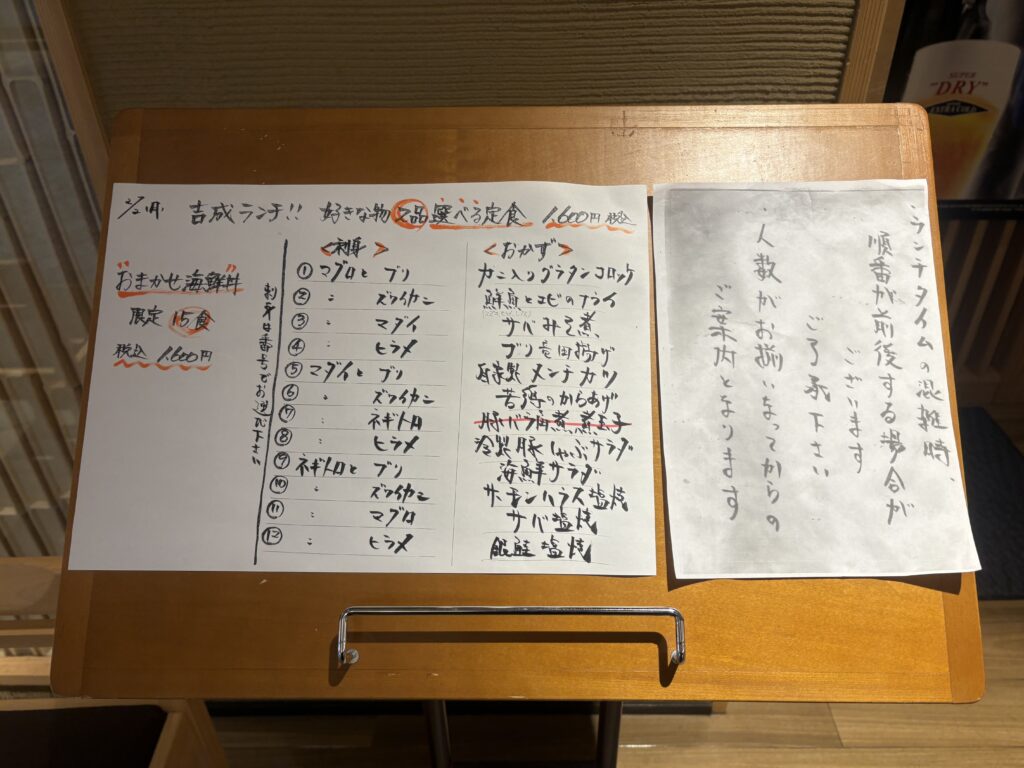 2/2(月) 吉成ランチ!! 好きな物2品選べる定食 1,600円税込
"おまかせ海鮮丼"
限定 15食
税込 1,600円
刺身は番号でお選び下さい
<刺身>
① マグロと ブリ
② 〃 ズワイカニ
③ 〃 マダイ
④ 〃 ヒラメ
⑤ マダイと ブリ
⑥ 〃 ズワイカニ
⑦ 〃 ネギトロ
⑧ 〃 ヒラメ
⑨ ネギトロと ブリ
⑩ 〃 ズワイカニ
⑪ 〃 マグロ
⑫ 〃 ヒラメ
<おかず>
カニ入りグラタンコロッケ
鮮魚とエビのフライ
サバみそ煮
ブリ竜田揚げ
自家製 メンチカツ
若鶏のからあげ
豚バラ角煮煮玉子
冷製豚しゃぶサラダ
海鮮サラダ
サーモンハラス塩焼
サバ塩焼
銀鮭塩焼
・ランチタイムの混雑時、
順番が前後する場合が
ございます
ご了承下さい
・人数がお揃いなってからの
ご案内となります
SUPER
"DRY"